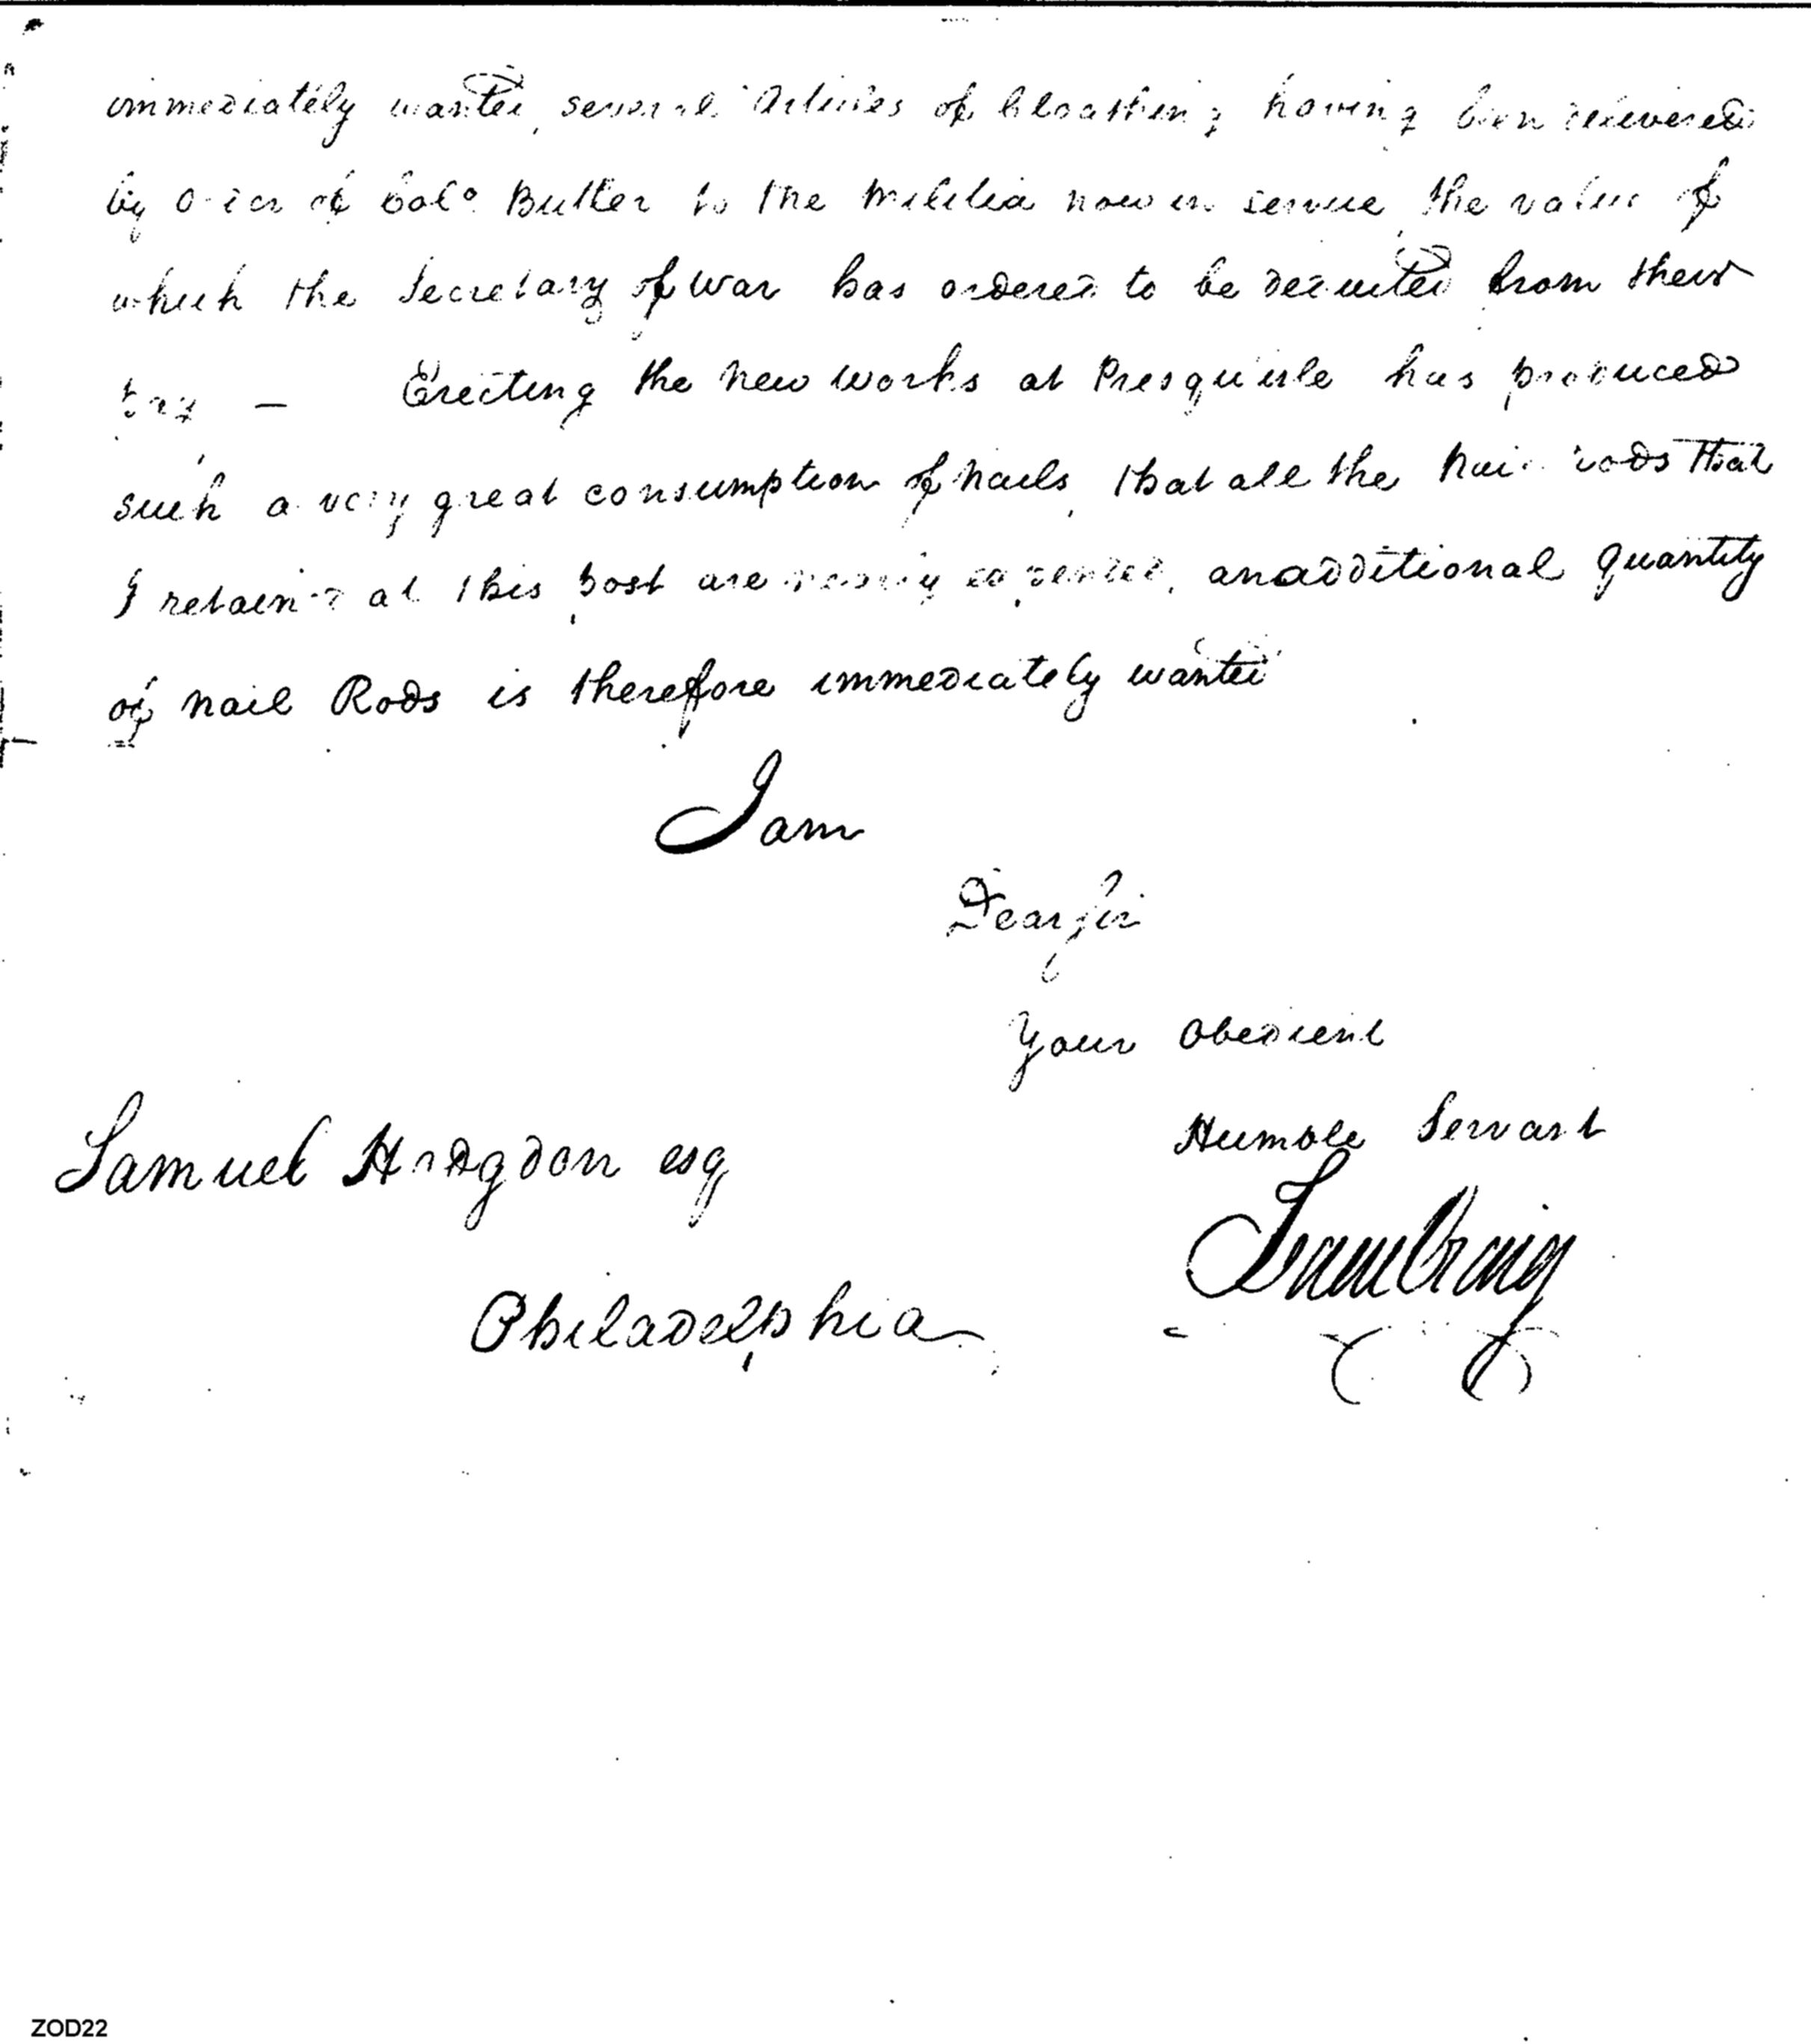 immediately wanted, several Articles of Cloathing having been delivered
by order of Colo. Butler to the Militia now in service, the value of
which the Secretary of War has ordered to be deducted from their
pay — Erecting the new works at Presqu'isle has produced
such a very great consumption of nails, that all the nail rods that
I retained at this post are nearly expended, an additional quantity
of nail Rods is therefore immediately wanted
I am
Dear Sir
Your Obedient
Humble Servant
Samuel Hodgdon esq
Isaac Craig
Philadelphia
ZOD22